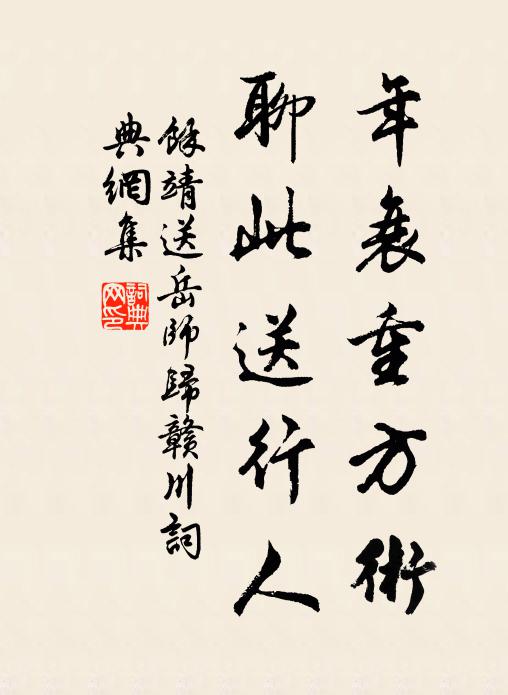 年衰重方術
聊此送行人
餘靖送岳師歸贛川詞
典網集
詞典網印